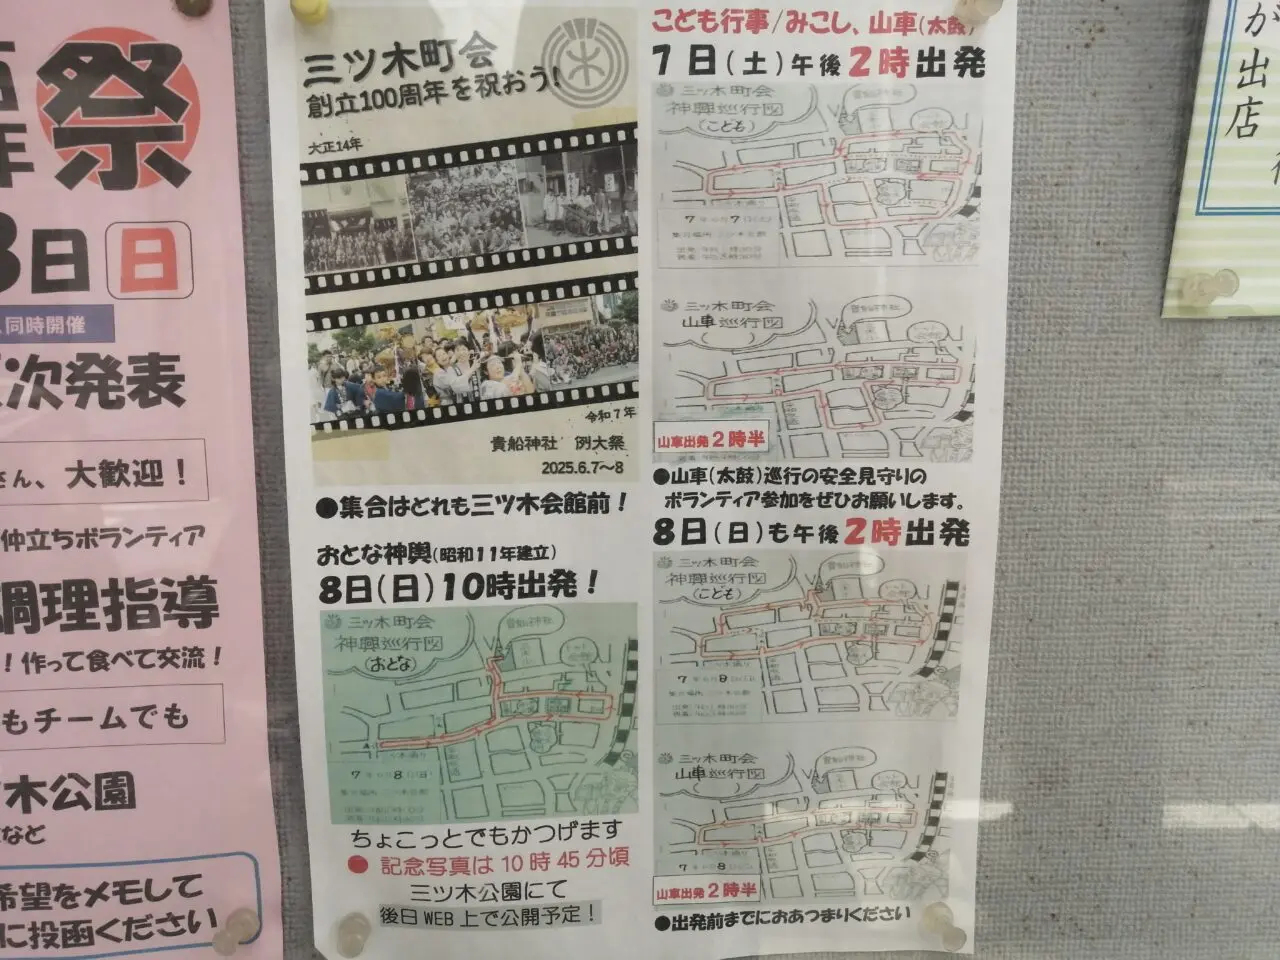 祭
日
日
同時開催
次発表
さん、大歓迎！
仲立ちボランティア
調理指導
！作って食べて交流！
もチームでも
木公園
など
希望をメモして
に投函ください
三ツ木町会
創立100周年を祝おう!
大正14年
令和7年
貴船神社 例大祭
2025.6.7〜8
●集合はどれも三ツ木会館前！
おとな神輿(昭和11年建立)
8日(日)10時出発！
三ツ木町会
神輿巡行図
(おとな)
貴船神社
7年6月8日(日)
ちょこっとでもかつげます
● 記念写真は10時45分頃
三ツ木公園にて
後日WEB上で公開予定！
こども行事/みこし、山車(太鼓)
7日(土)午後2時出発
三ツ木町会
神輿巡行図
(こども)
三ツ木町会
山車巡行図
貴船神社
山車出発2時半
●山車(太鼓)巡行の安全見守りの
ボランティア参加をぜひお願いします。
8日(日)も午後2時出発
三ツ木町会
神輿巡行図
(こども)
三ツ木町会
山車巡行図
山車出発2時半
●出発前までにおあつまりください
が出店